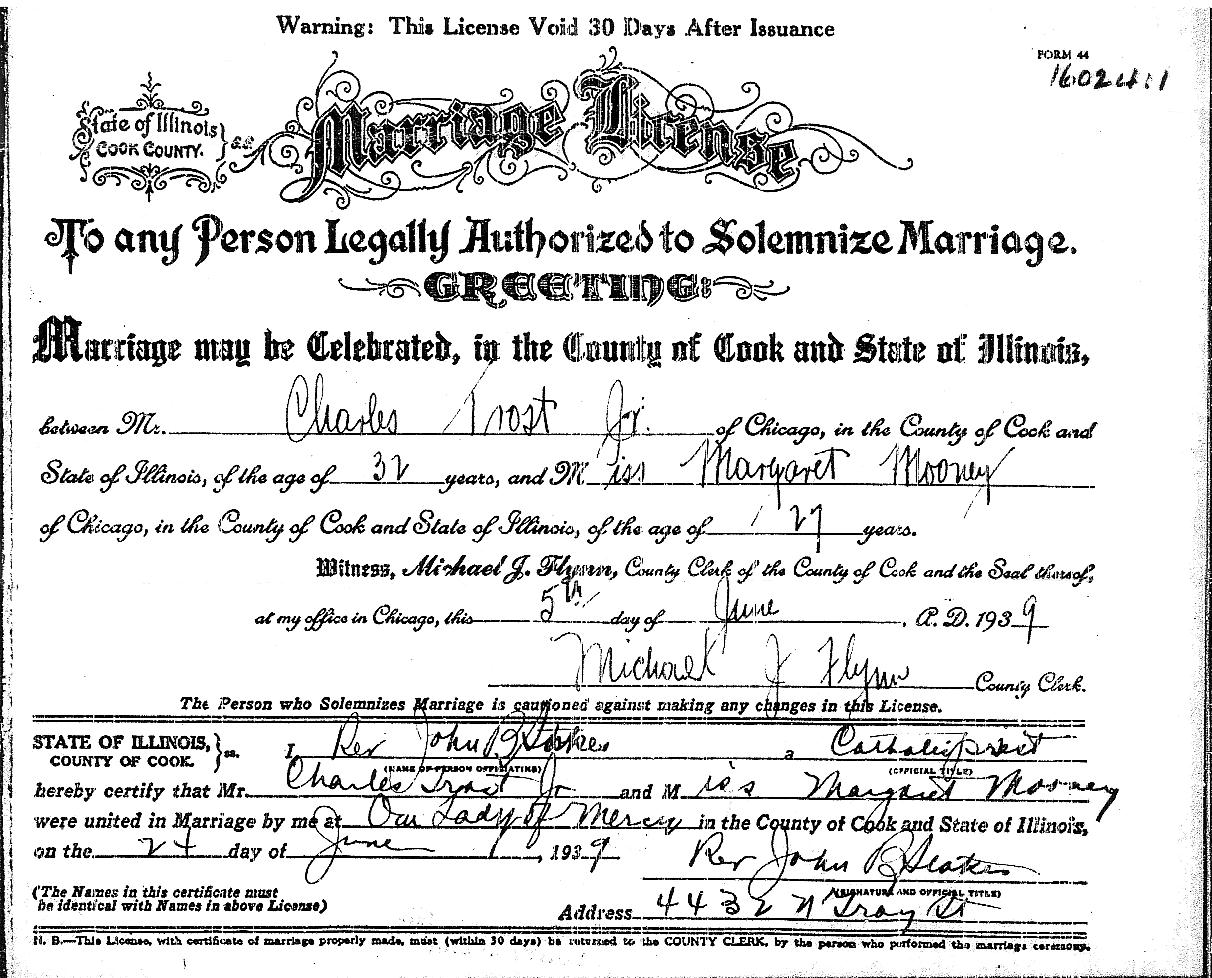 Warning: This License Void 30 Days After Issuance
FORM 44
State of Illinois } s.s.
COOK COUNTY.
Marriage License
To any Person Legally Authorized to Solemnize Marriage.
GREETING:
Marriage may be Celebrated, in the County of Cook and State of Illinois,
between Mr. Charles Trost Jr. of Chicago, in the County of Cook and
State of Illinois, of the age of 32 years, and Miss Margaret Mooney
of Chicago, in the County of Cook and State of Illinois, of the age of 27 years.
Witness, Michael J. Flynn, County Clerk of the County of Cook and the Seal thereof,
at my office in Chicago, this 5th day of June, A. D. 1939
Michael J Flynn County Clerk.
The Person who Solemnizes Marriage is cautioned against making any changes in this License.
STATE OF ILLINOIS, } ss. I, Rev John B a Catholic priest
COUNTY OF COOK. (NAME OF PERSON OFFICIATING) (OFFICIAL TITLE)
hereby certify that Mr. Charles Trost Jr and Miss Margaret Mooney
were united in Marriage by me at Our Lady of Mercy in the County of Cook and State of Illinois,
on the 24 day of June, 1939 Rev John B
(The Names in this certificate must (SIGNATURE AND OFFICIAL TITLE)
be identical with Names in above License) Address 4432 N Troy St
N. B.—This License, with certificate of marriage properly made, must (within 30 days) be returned to the COUNTY CLERK, by the person who performed the marriage ceremony.